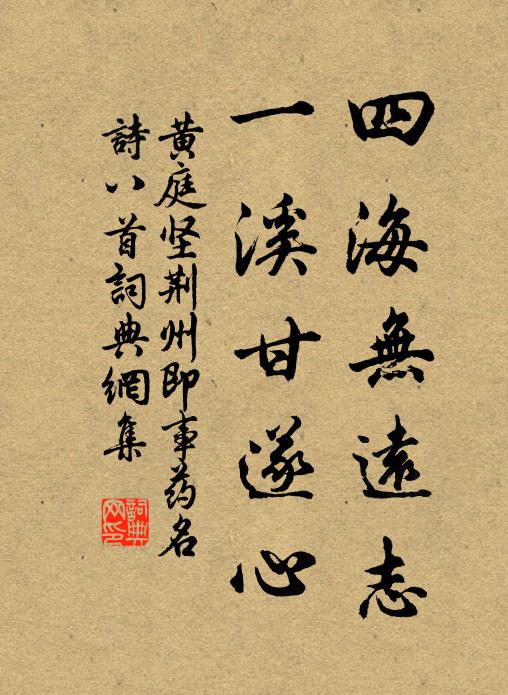 四海無遠志
一溪甘遂心
黄庭坚荆州即事药名
詩八首詞典網集
詞典網印